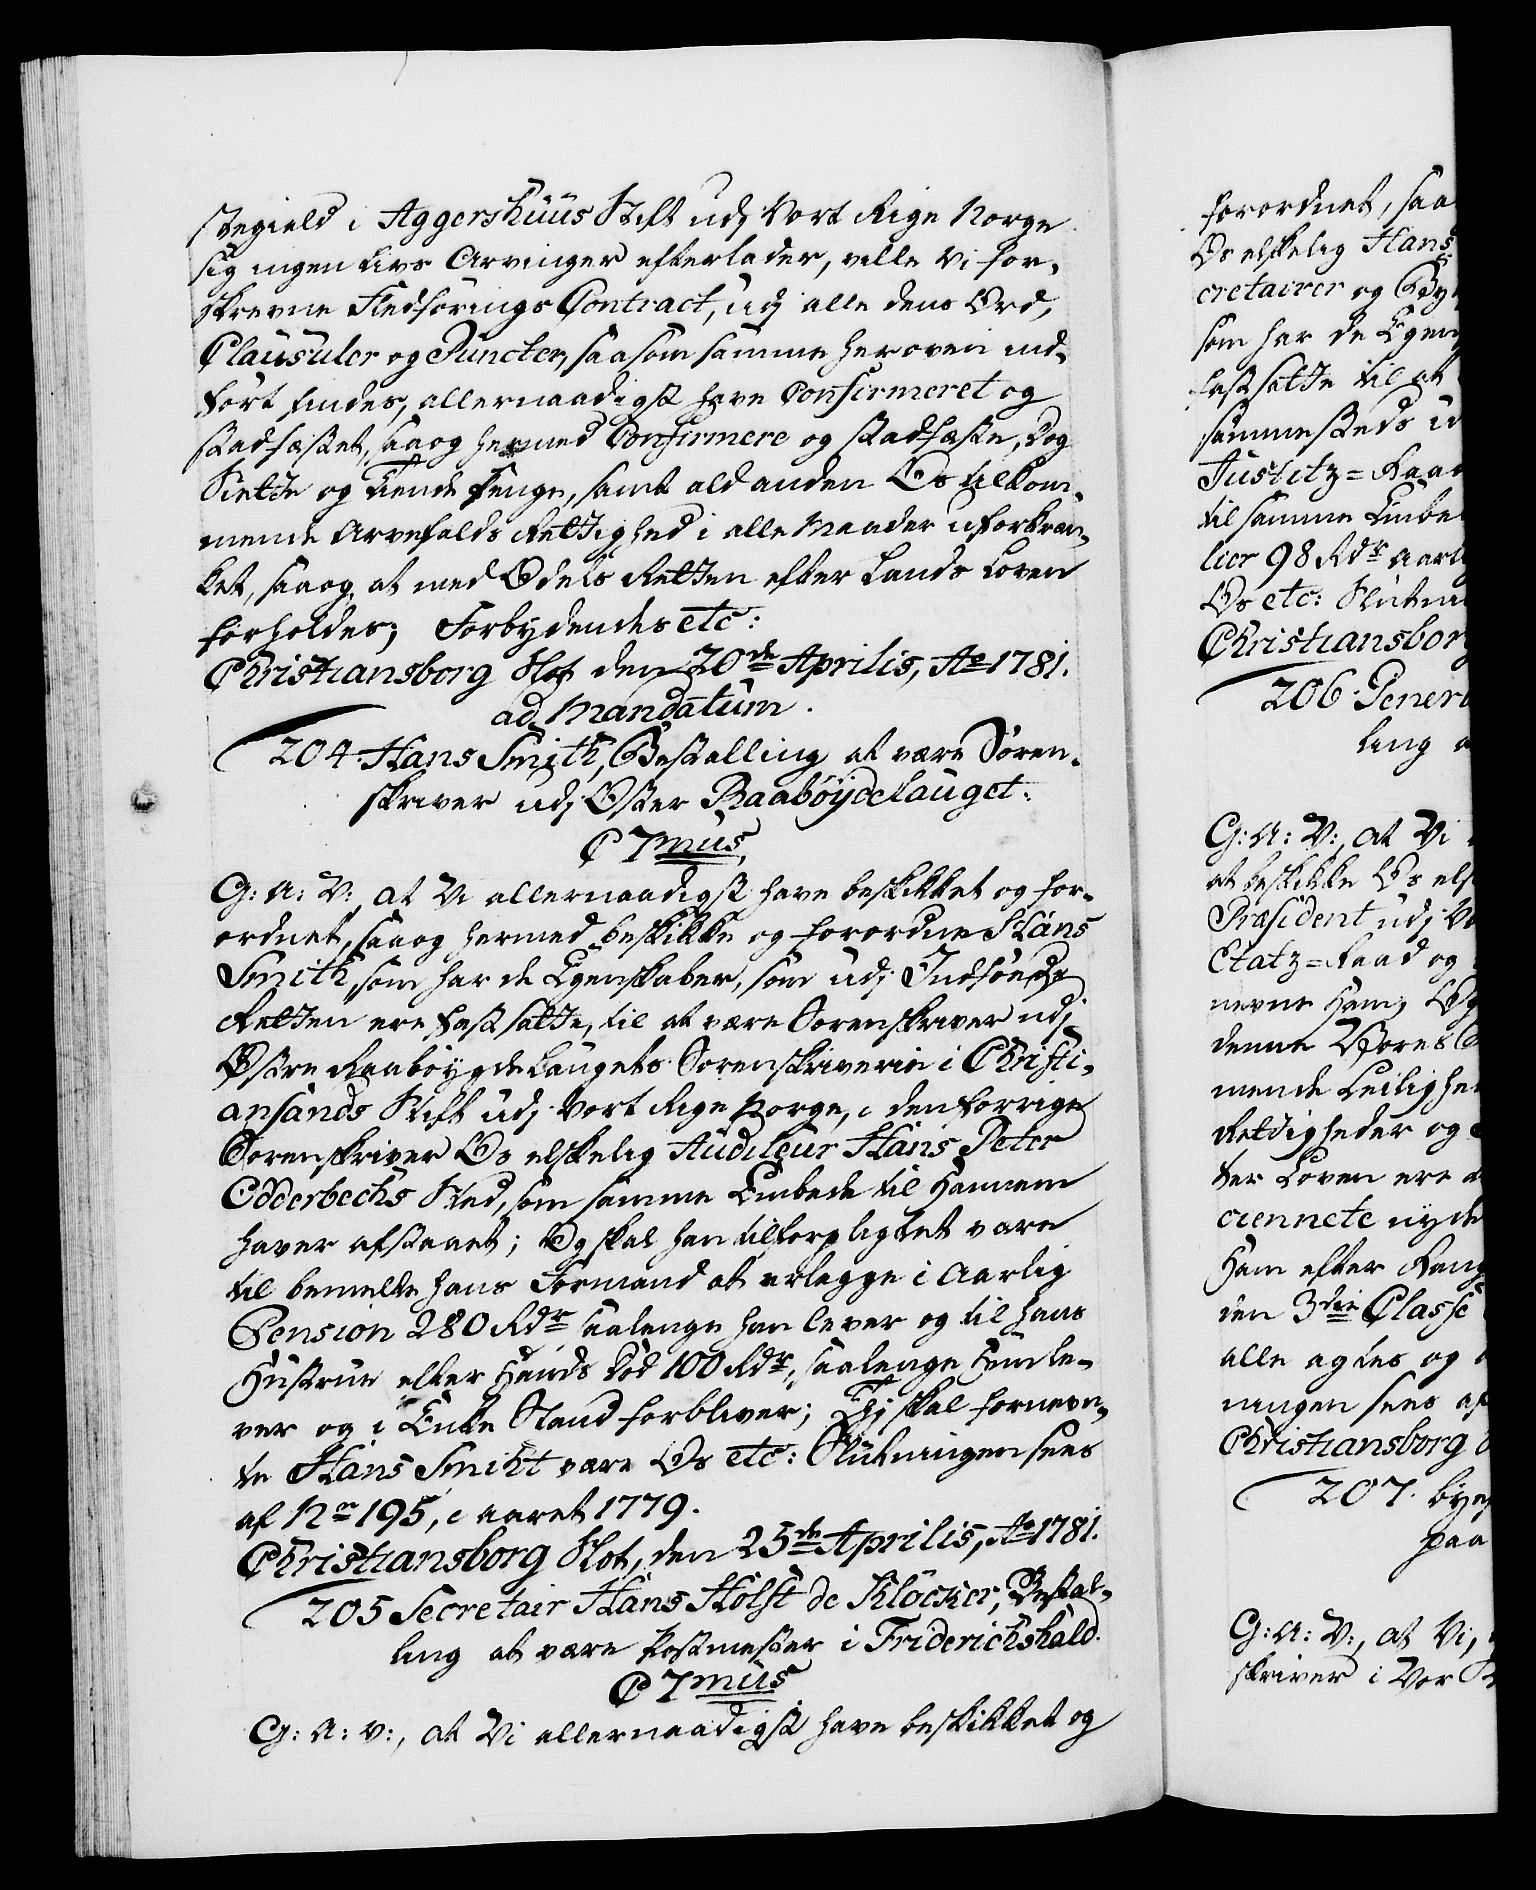 stegield i Aggershuus Stift udj Vort Rige Norge
sig ingen Livs Arvinger efterlader, ville Vi for-
skrevne Fledførings Contract, udj alle dens Ord,
Clausuler og Puncter, saasom samme her oven ind-
ført findes, allernaadigst have Confirmeret og
stadfæstet, saa og hermed Confirmere og stadfæste, dog
Siette og Tiende Penge, samt ald anden Os tilkom-
mende Arvefalds Rettighed i alle Maader uforkræn-
ket, saa og, at med Odels Retten efter Lands Loven
forholdes; Forbydendes etc:
Christiansborg Slot den 20de Aprilis, Ao 1781.
ad Mandatum.
204. Hans Smith, Bestalling at være Soren-
skriver udj Oster Raabøydelauget.
C 7mus
G: A: V:, at Vi allernaadigst have beskikket og for-
ordnet, saa og hermed beskikke og forordne Hans
Smith, som har de Egenskaber, som udj Indføds
Retten ere fastsatte, til at være Sorenskriver udj
Østre Raabøygdelaugets Sorenskriverie i Christi-
ansands Stift udj Vort Rige Norge, i den forrige
Sorenskriver Os elskelig Auditeur Hans Peter
Odderbechs Sted, som samme Embede til Hannem
haver afstaaet; Og skal han tilforpligtet være
til bemelte hans Formand at erlegge i Aarlig
Pension 280 Rdr saalenge han lever og til hans
Hustrue efter Hands Død 100 Rdr, saalenge Hun le-
ver og i Enke Stand forbliver; Thj skal fornevn-
te Hans Smiht være Os etc: Slutningen sees
af No 195, i aaret 1779.
Christiansborg Slot, den 25de Aprilis, Ao 1781.
205 Secretair Hans Holst de Klöcker, Bestal-
ling at være Postmester i Friderichshald.
C 7mus
G: A: V:, at Vi allernaadigst have beskikket og
forordnet, saa
Os elskelig Hans
cretairer og
som har de Egen
fastsatte til at
sammesteds
Justitz=Raad
til samme Embe
lier 98 Rdr aarl
Os etc: Slutni
Christiansborg
206. Gener
ling
G: A: V:, at Vi
at beskikke Os els
Præsident udj Vo
Etatz=Raad og
nevne Ham,
denne Vores
mende Leilighed
Retdigheder og
ter Loven ere
ciennete nyde
Ham efter Rang
den 3die Classe
alle agtes og
ningen sees af
Christiansborg
207. bye
paa
G: A: V:, at Vi,
skriver i Vor